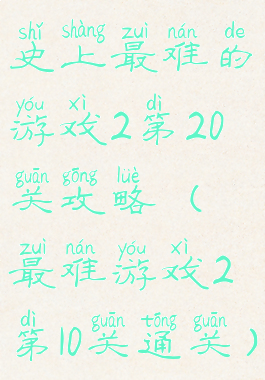 shǐ shàng zuì nán de
史上最难的
yóu xì dì
游戏2第20
guān gōng lüè
关攻略（
zuì nán yóu xì
最难游戏2
dì guān tōng guān
第10关通关）